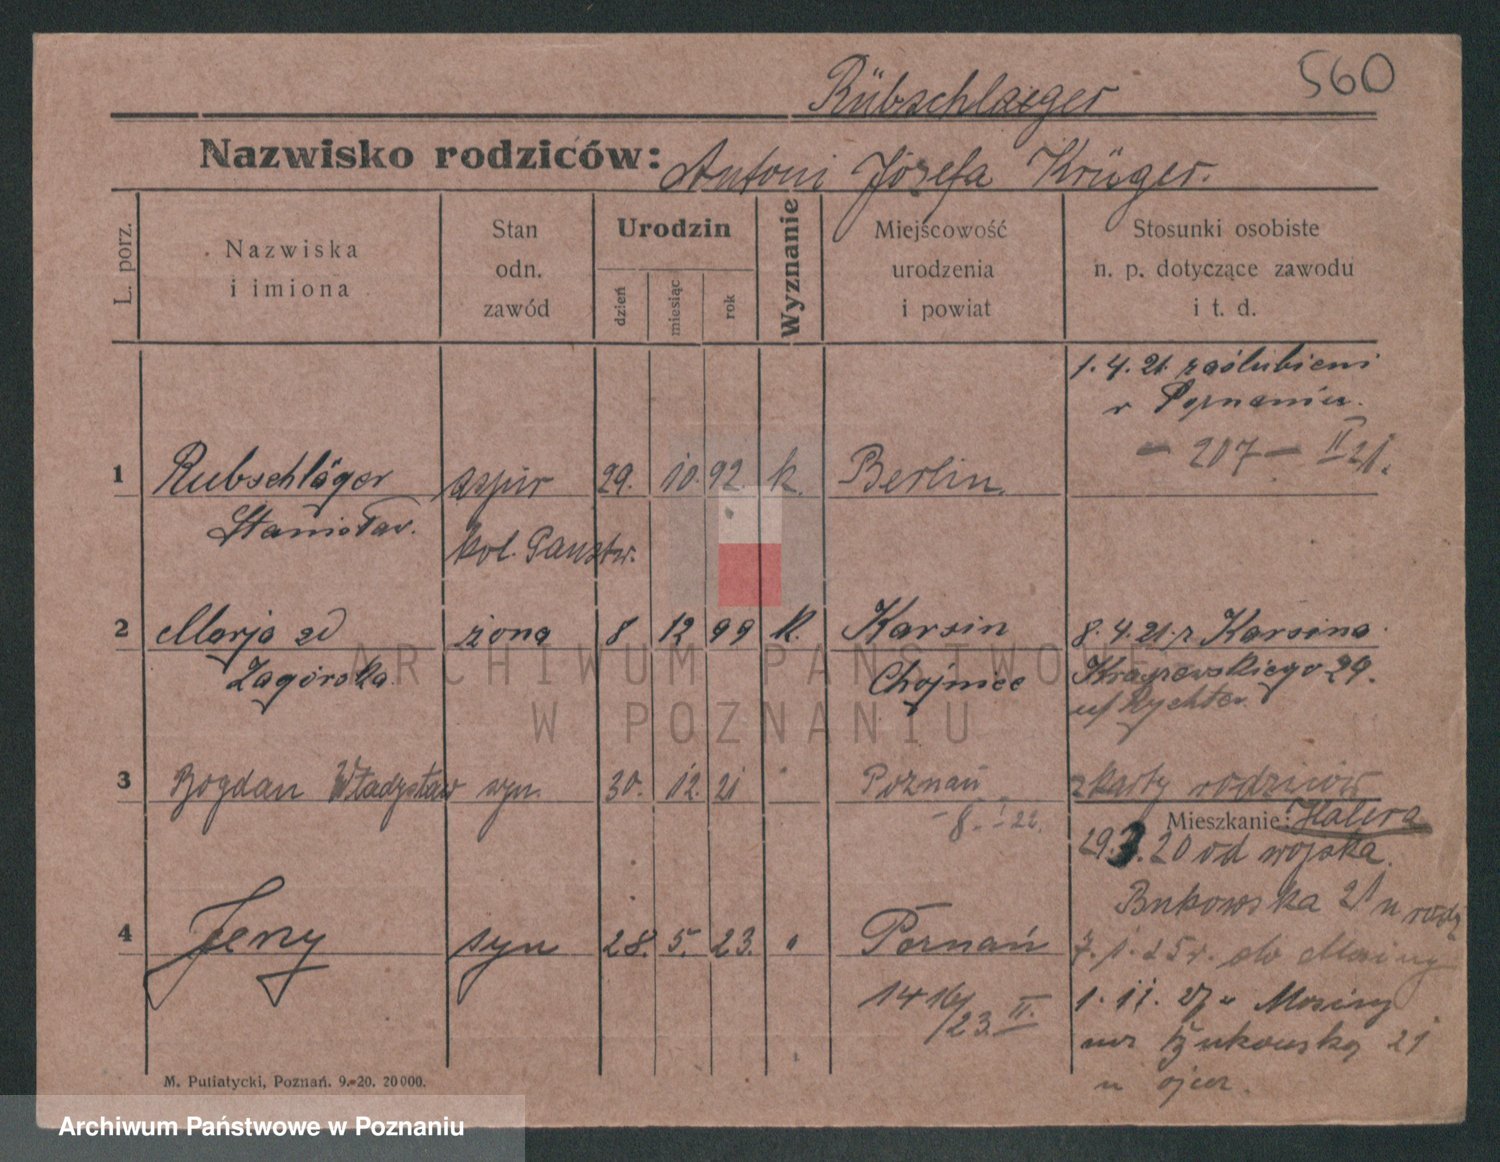 560
Rübschlaeger
Nazwisko rodziców: Antoni Józefa Krüger.
L. porz.
Nazwiska
i imiona
Stan
odn.
zawód
Urodzin
dzień
miesiąc
rok
Wyznanie
Miejscowość
urodzenia
i powiat
Stosunki osobiste
n. p. dotyczące zawodu
i t. d.
1. 4. 21. zaślubieni
w Poznaniu.
- 207 - II 21.
1 Rubschläger aspir 29. 10. 92. k. Berlin.
Stanisław. kol. Państw.
2 Marja zd żona 8 12 99 k. Karsin 8. 4. 21. z Karsina.
Zagórska Chojnice Kraszewskiego 29.
u/ Rychter
3 Bogdan Władysław syn. 30. 12. 21 Poznań z karty rodziców
- 8. I 22.
Mieszkanie: Halera
29. 3. 20 od wojska.
Bukowska 21 u rodz
4 Jerzy syn 28. 5. 23. Poznań 7. 1. 25 r. do
1416/23. II.
1. 11. 27 z Mosiny
Bukowska 21
u ojca.
M. Putiatycki, Poznań. 9.-20. 20000.
ARCHIWUM PAŃSTWOWE
W POZNANIU
Archiwum Państwowe w Poznaniu